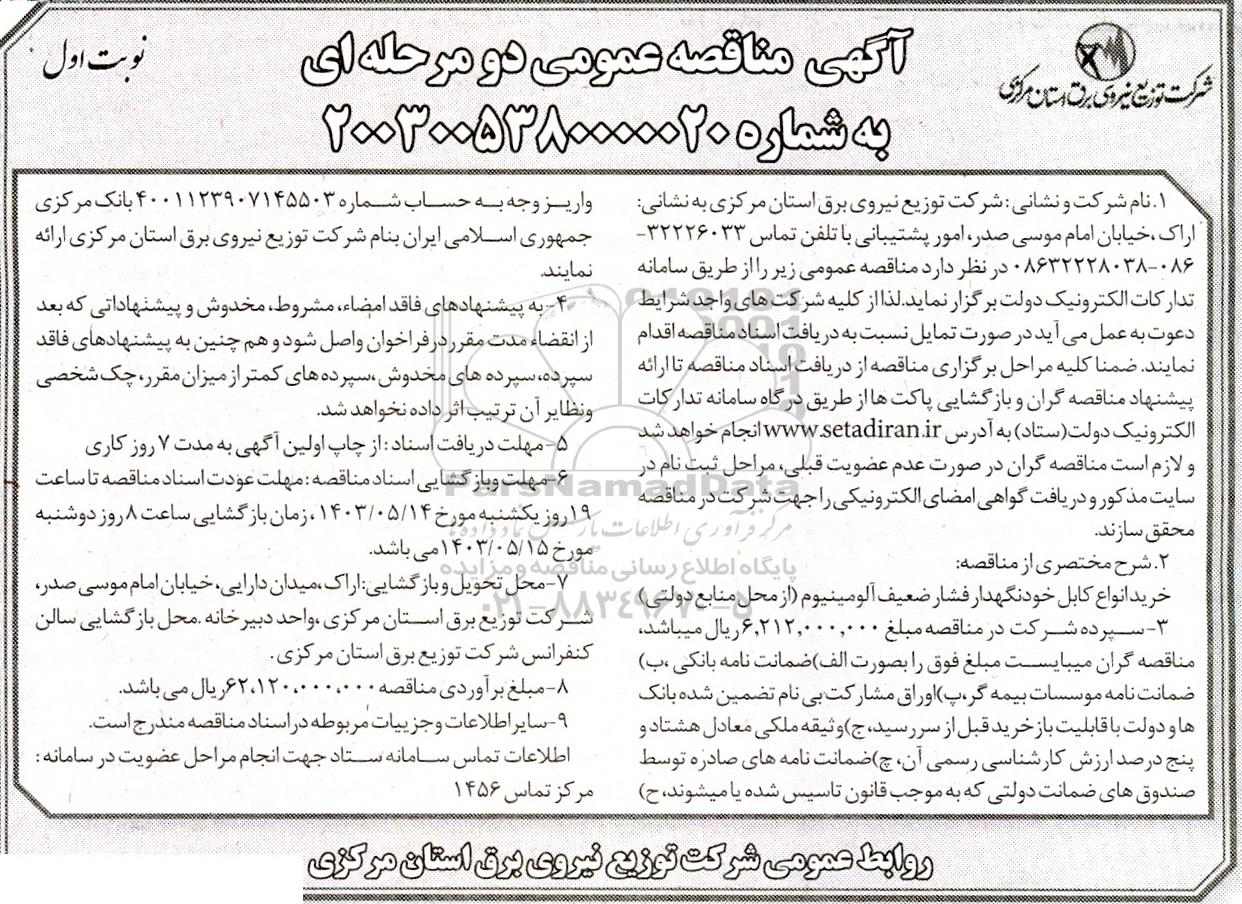 شرکت توزیع نیروی برق استان مرکزی
نوبت اول
آگهی مناقصه عمومی دو مرحله ای
به شماره ۲۰۰۳۰۰۵۳۸۰۰۰۰۰۰۲۰
۱. نام شرکت و نشانی : شرکت توزیع نیروی برق استان مرکزی به نشانی:
اراک ،خیابان امام موسی صدر، امور پشتیبانی با تلفن تماس ۳۲۲۲۶۰۳۳-
۰۸۶-۰۸۶۳۲۲۲۸۰۳۸ در نظر دارد مناقصه عمومی زیر را از طریق سامانه
تدارکات الکترونیک دولت برگزار نماید.لذا از کلیه شرکت های واجد شرایط
دعوت به عمل می آید در صورت تمایل نسبت به دریافت اسناد مناقصه اقدام
نمایند. ضمنا کلیه مراحل برگزاری مناقصه از دریافت اسناد مناقصه تا ارائه
پیشنهاد مناقصه گران و بازگشایی پاکت ها از طریق درگاه سامانه تدارکات
الکترونیک دولت(ستاد) به آدرس www.setadiran.ir انجام خواهد شد
و لازم است مناقصه گران در صورت عدم عضویت قبلی، مراحل ثبت نام در
سایت مذکور و دریافت گواهی امضای الکترونیکی را جهت شرکت در مناقصه
محقق سازند.
۲. شرح مختصری از مناقصه:
خرید انواع کابل خودنگهدار فشار ضعیف آلومینیوم (از محل منابع دولتی)
۳- سپرده شرکت در مناقصه مبلغ ۶,۲۱۲,۰۰۰,۰۰۰ ریال میباشد،
مناقصه گران میبایست مبلغ فوق را بصورت الف)ضمانت نامه بانکی ،ب)
ضمانت نامه موسسات بیمه گر،پ)اوراق مشارکت بی نام تضمین شده بانک
ها و دولت با قابلیت بازخرید قبل از سررسید، ج)وثیقه ملکی معادل هشتاد و
پنج درصد ارزش کارشناسی رسمی آن، چ)ضمانت نامه های صادره توسط
صندوق های ضمانت دولتی که به موجب قانون تاسیس شده یا میشوند، ح)
واریز وجه به حساب شماره ۴۰۰۱۱۲۳۹۰۷۱۴۵۵۰۳ بانک مرکزی
جمهوری اسلامی ایران بنام شرکت توزیع نیروی برق استان مرکزی ارائه
نمایند.
۴- به پیشنهادهای فاقد امضاء، مشروط، مخدوش و پیشنهاداتی که بعد
از انقضاء مدت مقرر در فراخوان واصل شود و هم چنین به پیشنهادهای فاقد
سپرده، سپرده های مخدوش ،سپرده های کمتر از میزان مقرر، چک شخصی
ونظایر آن ترتیب اثر داده نخواهد شد.
۵- مهلت دریافت اسناد : از چاپ اولین آگهی به مدت ۷ روز کاری
۶- مهلت وبازگشایی اسناد مناقصه : مهلت عودت اسناد مناقصه تا ساعت
۱۹ روز یکشنبه مورخ ۱۴۰۳/۰۵/۱۴ ، زمان بازگشایی ساعت ۸ روز دوشنبه
مورخ ۱۴۰۳/۰۵/۱۵ می باشد.
۷- محل تحویل و بازگشایی: اراک،میدان دارایی، خیابان امام موسی صدر،
شرکت توزیع برق استان مرکزی ،واحد دبیرخانه .محل بازگشایی سالن
کنفرانس شرکت توزیع برق استان مرکزی .
۸- مبلغ برآوردی مناقصه ۶۲,۱۲۰,۰۰۰,۰۰۰ ریال می باشد.
۹- سایر اطلاعات و جزییات مربوطه در اسناد مناقصه مندرج است.
اطلاعات تماس سامانه ستاد جهت انجام مراحل عضویت در سامانه :
مرکز تماس ۱۴۵۶
ParsNamadData
مرکز فرآوری اطلاعات پارس نماد داده ها
پایگاه اطلاع رسانی مناقصه و مزایده
۰۲۱-۸۸۳۴۹۶۷۰-۵
روابط عمومی شرکت توزیع نیروی برق استان مرکزی